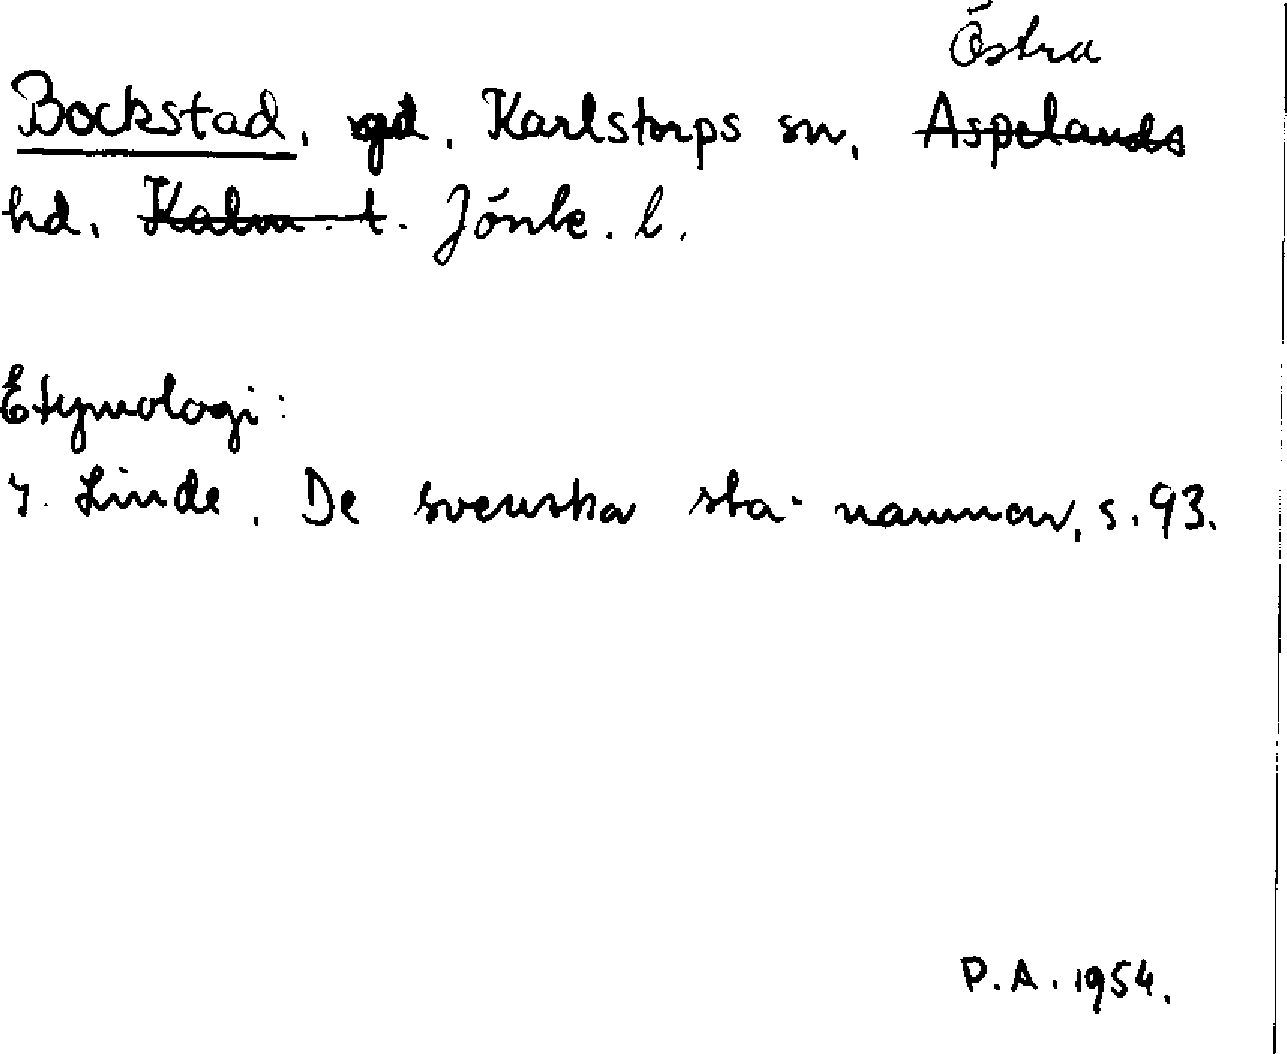 Östra
Bockstad, gd, Karlstorps sn, Aspelands
hd. Kalm. l. Jönk. l.
Etymologi:
G. Linde, De svenska sta-namnen, s. 93.
P.A. 1954.